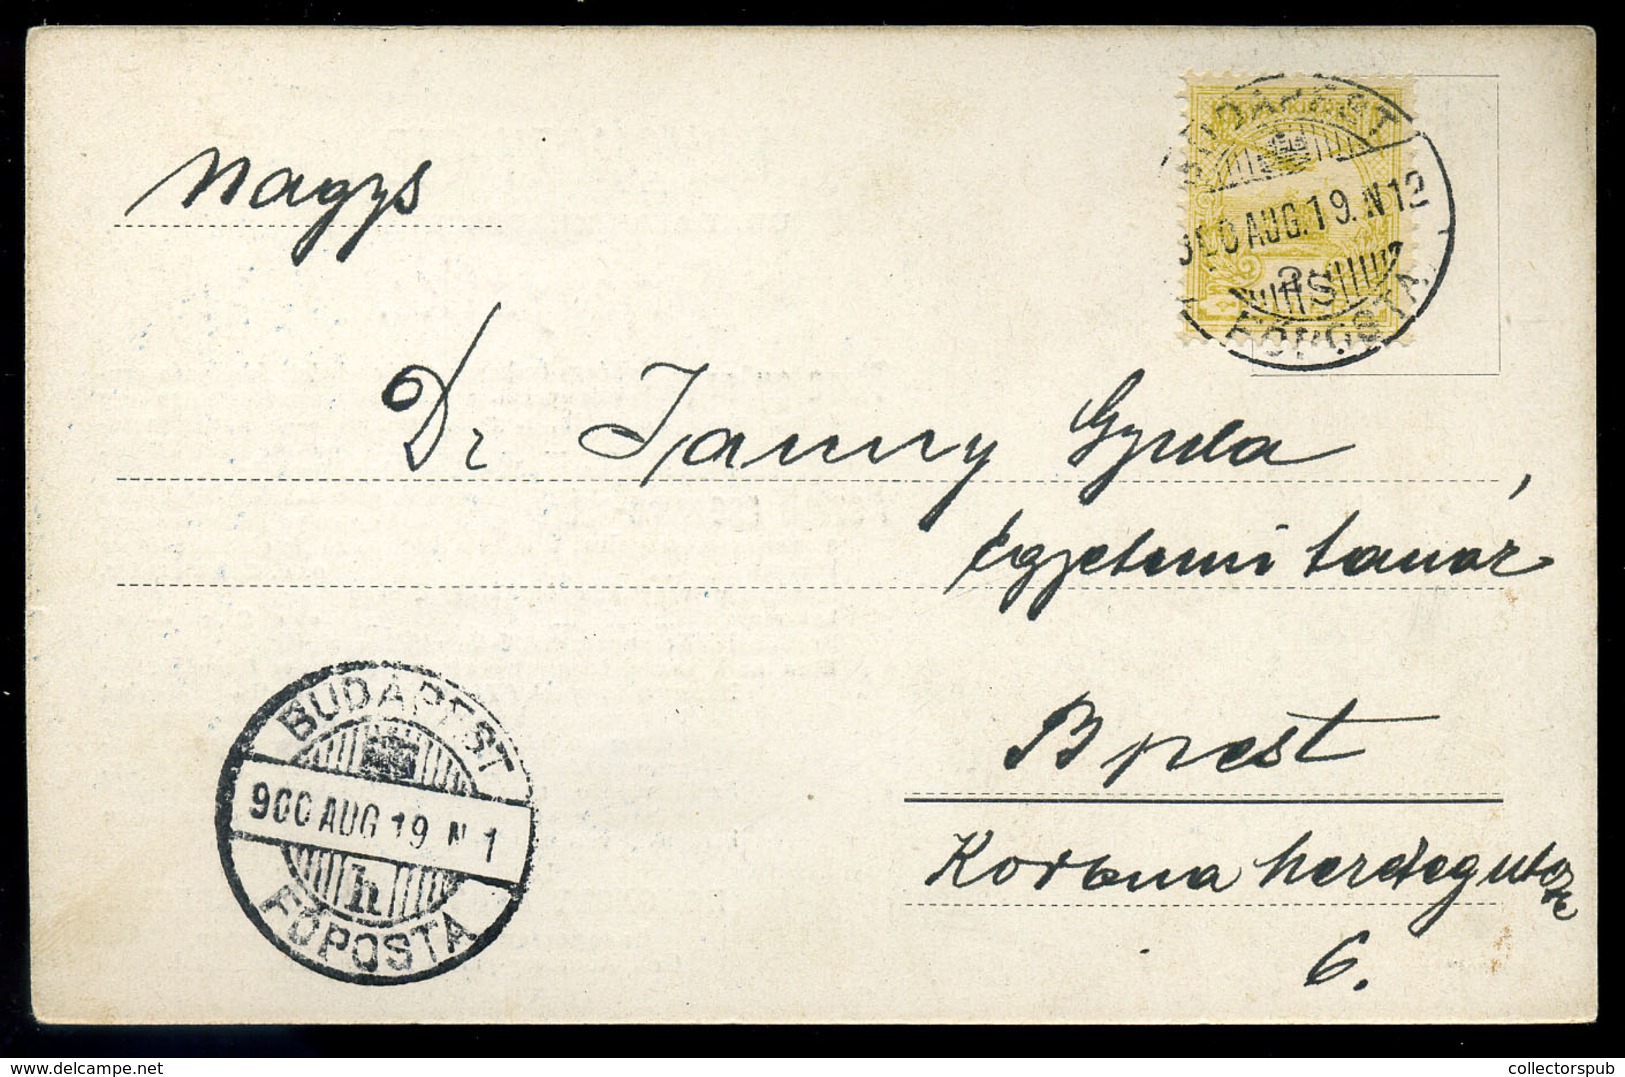 Nagys
BUDAPEST
900 AUG. 19. N 12
FŐPOSTA
Dr Janny Gyula,
egyetemi tanár
Bpest
Korona herczegutcza
6.
BUDAPEST
900 AUG 19 N 1
h
FŐPOSTA
delcampe.net
collectorspub